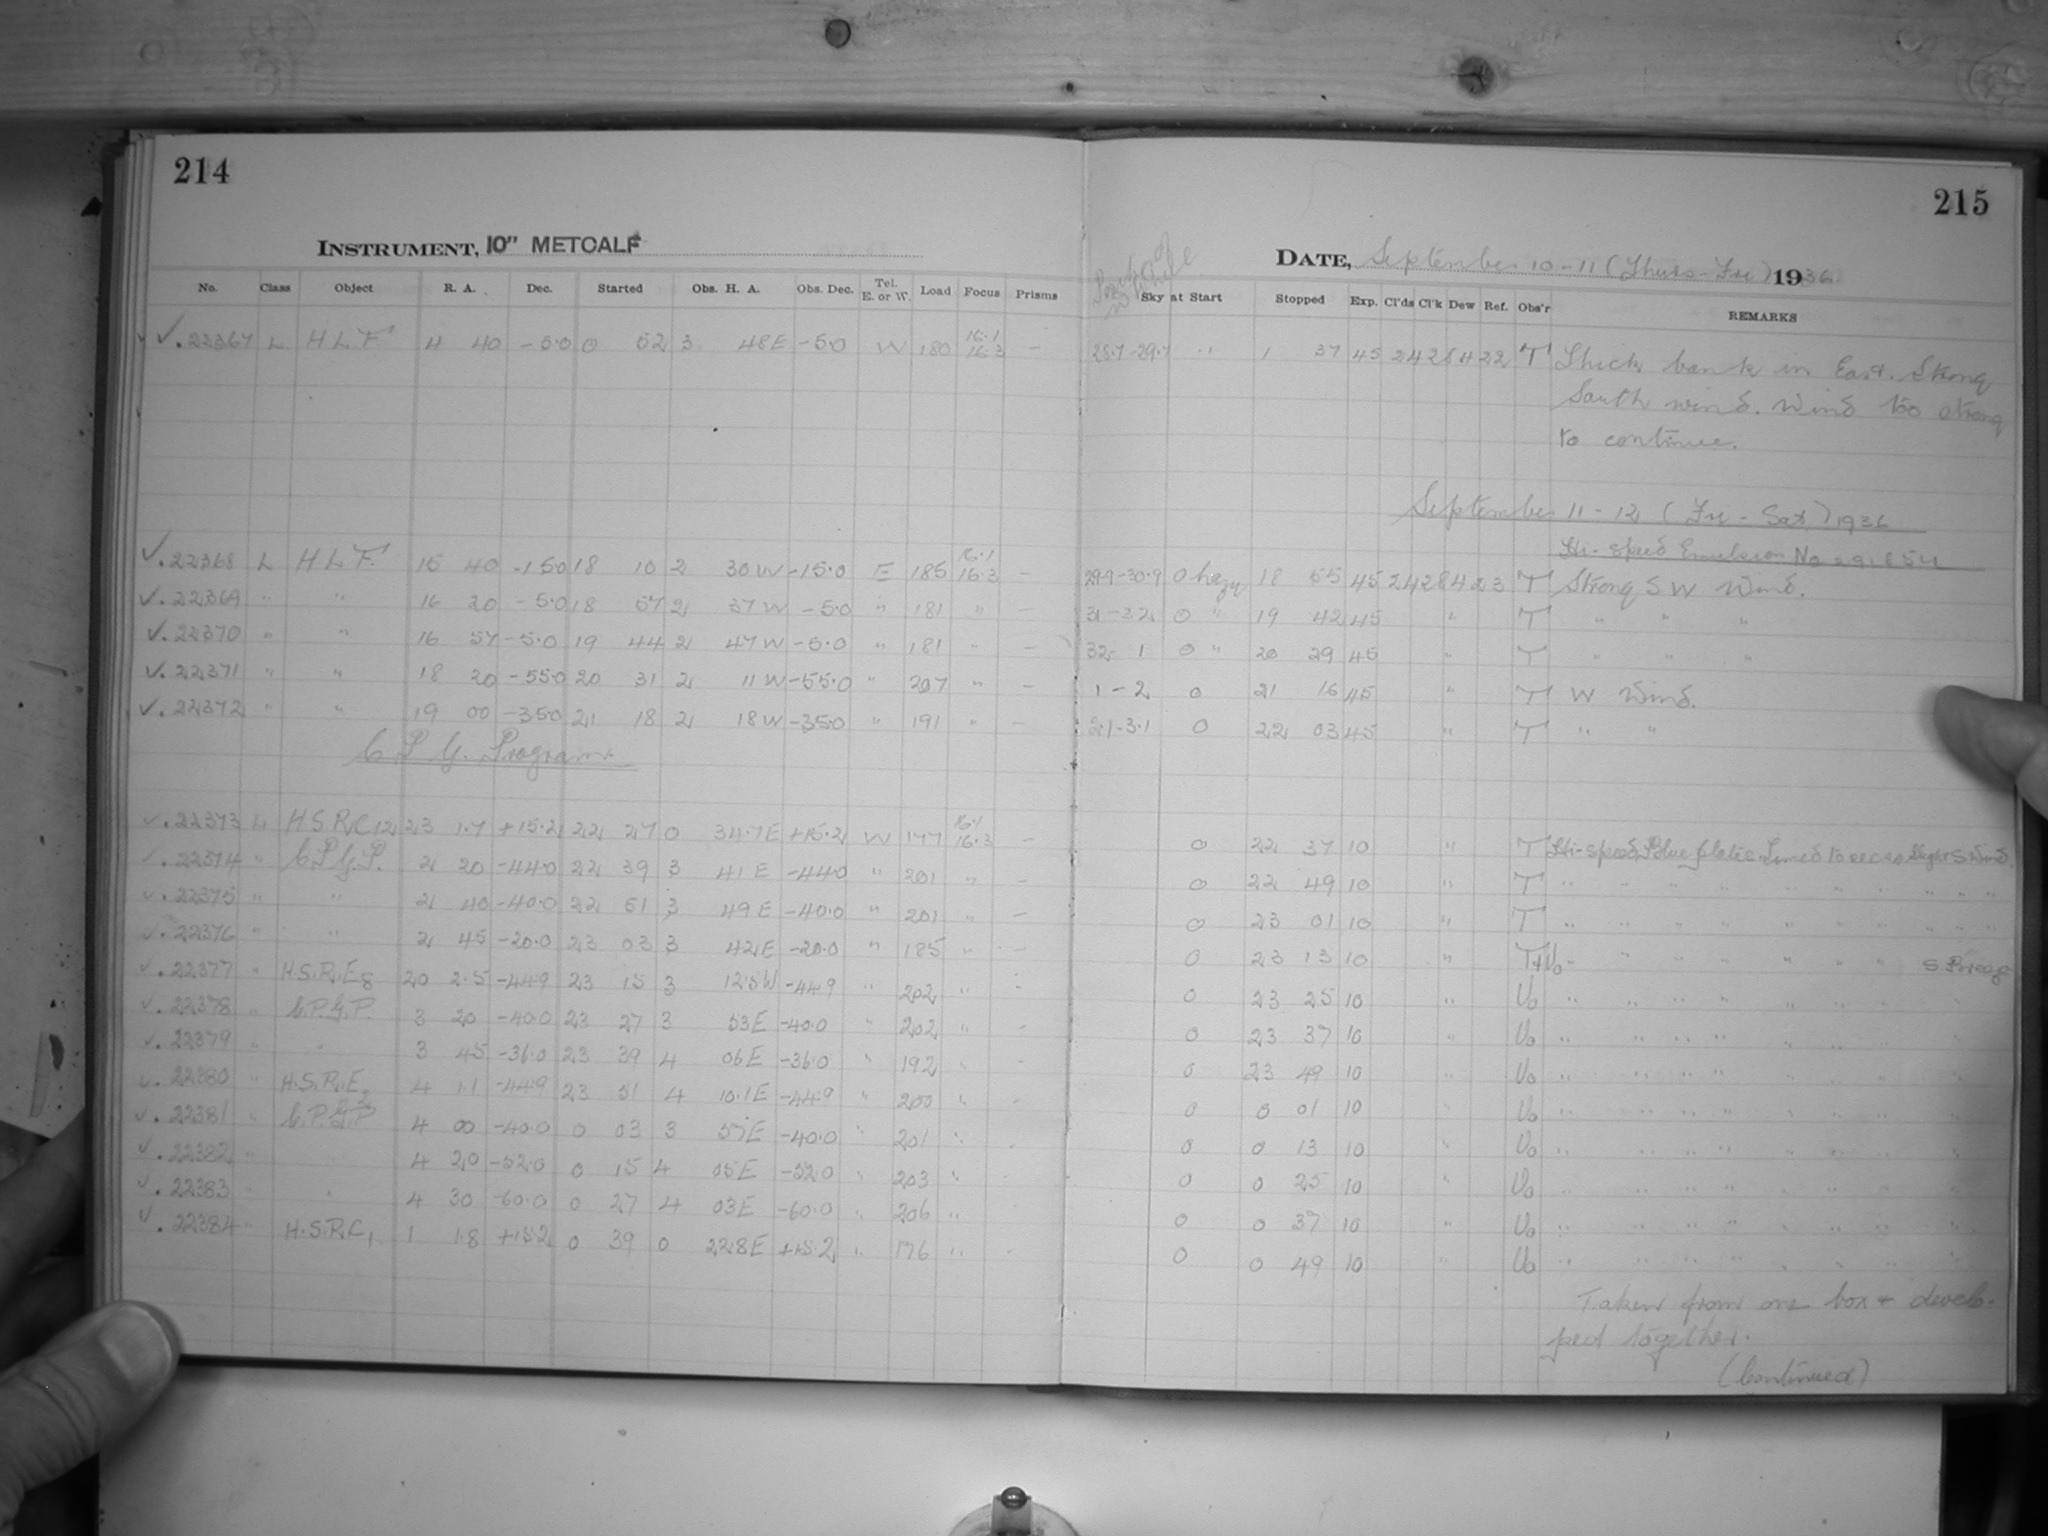 214
215
INSTRUMENT, 10" METCALF
DATE, September 10-11 (Thurs-Fri) 1936
No. Class Object R. A. Dec. Started Obs. H. A. Obs. Dec. Tel. E. or W. Load Focus Prisms Sky at Start Stopped Exp. Cl'ds Cl'k Dew Ref. Obs'r REMARKS
✓.22367 L H L F 4 40 -5.0 0 52 3 48E -5.0 W 180 16.1 16.3 – 28.7-29.7 " 1 37 45 24 28 4 22 T Thick bank in East. Strong
South wind. Wind too strong
to continue.
September 11-12 (Fri - Sat) 1936
Hi-speed Emulsion No
✓.22368 L H L F. 15 40 -15.0 18 10 2 30W -15.0 E 185 16.1 16.3 – 29.9-30.9 0 hazy 18 55 45 24 28 4 23 T Strong S W Wind.
✓.22369 " " 16 20 -5.0 18 57 2 37W -5.0 " 181 " – 31-32 0 " 19 42 45 " T " " "
✓.22370 " " 16 57 -5.0 19 44 2 47W -5.0 " 181 " – 32 1 0 " 20 29 45 " T " " "
✓.22371 " " 18 20 -55.0 20 31 2 11W -55.0 " 207 " – 1-2 0 21 16 45 " T W Wind.
✓.22372 " " 19 00 -35.0 21 18 2 18W -35.0 " 191 " 2.1-3.1 0 22 03 45 " T " "
C P G. Program.
✓.22373 L H S R C12 23 1.7 +15.2 22 27 0 34.7E +15.2 W 177 16.1 16.3 – 0 22 37 10 " T Hi-speed Blue plates. Slight S Wind.
✓.22374 " C.P.G.P. 2 20 -44.0 22 39 3 41E -44.0 " 201 " – 0 22 49 10 T " " " " " " " " "
✓.22375 " " 2 40 -40.0 22 51 3 49E -40.0 " 201 " – 0 23 01 10 " T " " " " " " " " "
✓.22376 " " 2 45 -20.0 23 03 3 42E -20.0 " 185 " – 0 23 13 10 " T+Uo " " " " " " " S. Breeze
✓.22377 " H.S.R.E8 20 2.5 -44.9 23 15 3 12.5W -44.9 " 202 " – 0 23 25 10 " Uo " " " " " " "
✓.22378 " C.P.G.P. 3 20 -40.0 23 27 3 53E -40.0 " 202 " – 0 23 37 10 " Uo " " " " " " "
✓.22379 " " 3 45 -36.0 23 39 4 06E -36.0 " 192 " – 0 23 49 10 " Uo " " " " " " "
✓.22380 " H.S.R.E2 4 1.1 -44.9 23 51 4 10.1E -44.9 " 200 " – 0 0 01 10 " Uo " " " " " " "
✓.22381 " C.P.G.P 4 00 -40.0 0 03 3 57E -40.0 " 201 " – 0 0 13 10 " Uo " " " " " " "
✓.22382 " " 4 20 -52.0 0 15 4 05E -52.0 " 203 " – 0 0 25 10 " Uo " " " " " " "
✓.22383 " " 4 30 -60.0 0 27 4 03E -60.0 " 206 " – 0 0 37 10 " Uo " " " " " " "
✓.22384 " H.S.R.C1 1 1.8 +15.2 0 39 0 22.8E +15.2 " 176 " – 0 0 49 10 " Uo " " " " " " "
Taken from one box & develo-
ped together.
(Continued)